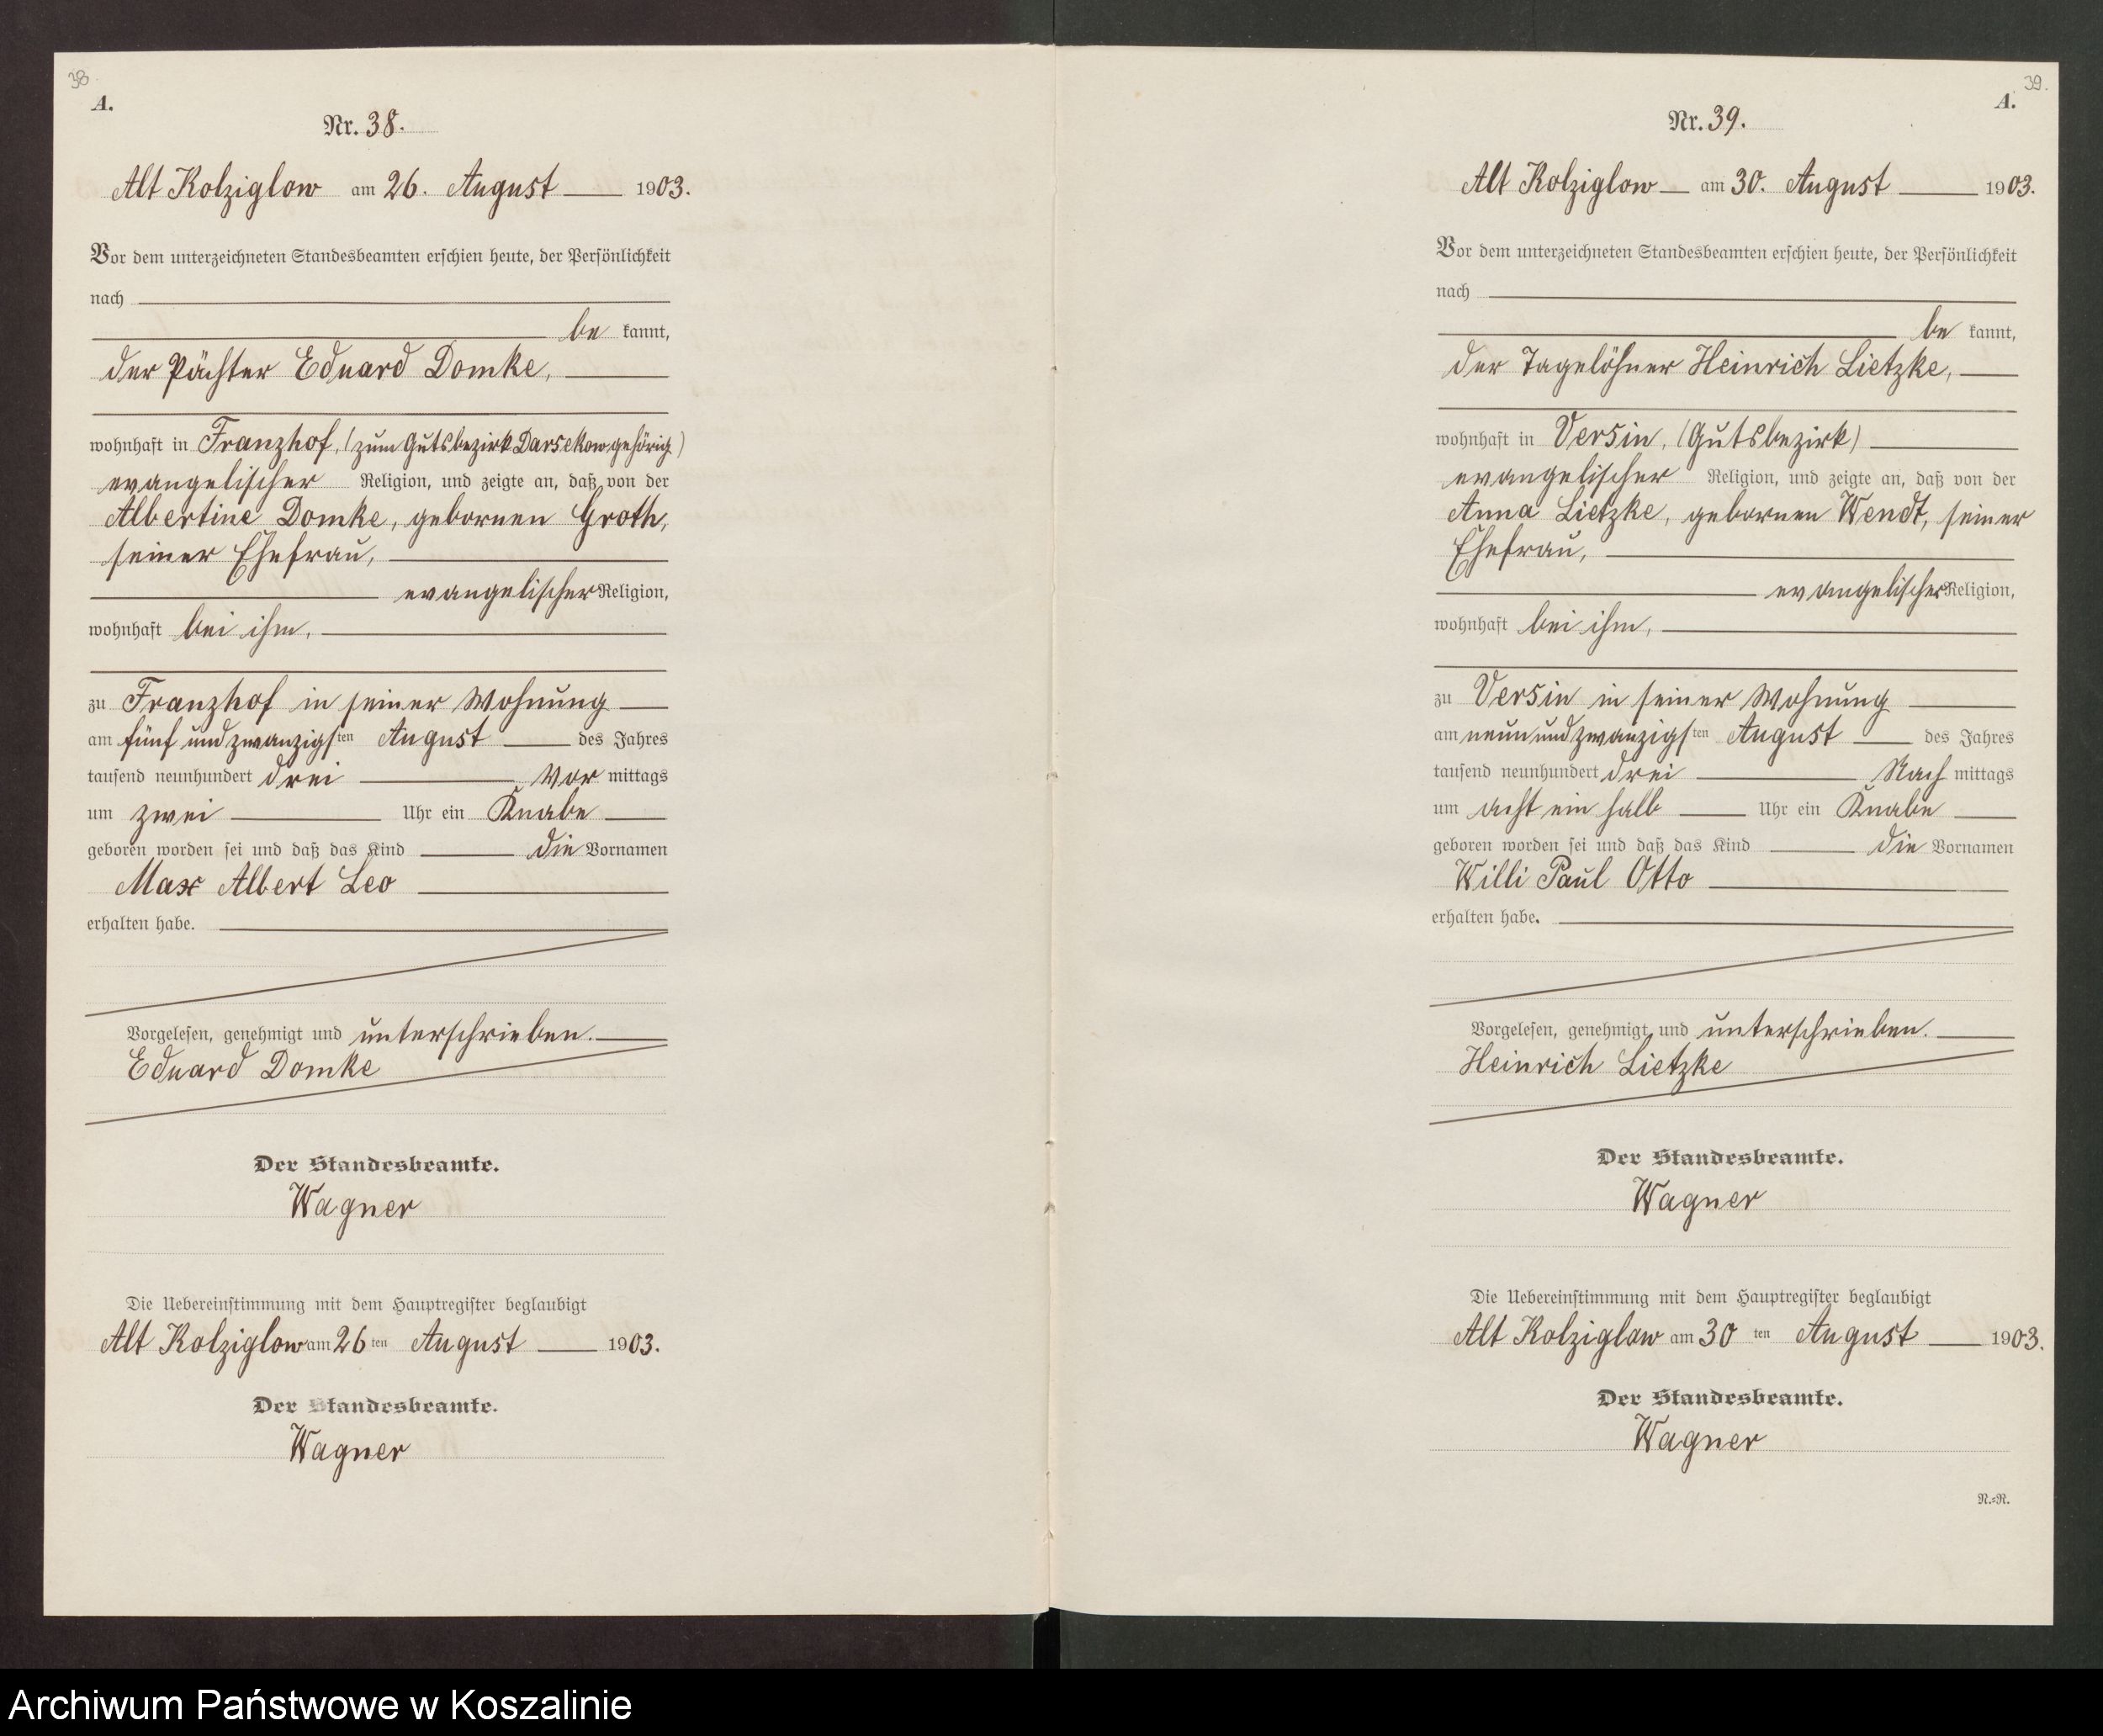 38
A.
Nr. 38.
Alt Kolziglow am 26. August 1903.
Vor dem unterzeichneten Standesbeamten erschien heute, der Persönlichkeit
nach
be kannt,
der Pächter Eduard Domke,
wohnhaft in Franzhof, (zum Gutsbezirk Darsekow gehörig)
evangelischer Religion, und zeigte an, daß von der
Albertine Domke, gebornen Groth,
seiner Ehefrau,
evangelischer Religion,
wohnhaft bei ihm,
zu Franzhof in seiner Wohnung
am fünf und zwanzigsten August des Jahres
tausend neunhundert drei Vor mittags
um zwei Uhr ein Knabe
geboren worden sei und daß das Kind die Vornamen
Max Albert Leo
erhalten habe.
Vorgelesen, genehmigt und unterschrieben.
Eduard Domke
Der Standesbeamte.
Wagner
Die Uebereinstimmung mit dem Hauptregister beglaubigt
Alt Kolziglow am 26 ten August 1903.
Der Standesbeamte.
Wagner
39.
A.
Nr. 39.
Alt Kolziglow am 30. August 1903.
Vor dem unterzeichneten Standesbeamten erschien heute, der Persönlichkeit
nach
be kannt,
der Tagelöhner Heinrich Lietzke,
wohnhaft in Versin, (Gutsbezirk)
evangelischer Religion, und zeigte an, daß von der
Anna Lietzke, gebornen Wendt, seiner
Ehefrau,
evangelischer Religion,
wohnhaft bei ihm,
zu Versin in seiner Wohnung
am neun und zwanzigsten August des Jahres
tausend neunhundert drei Nach mittags
um acht ein halb Uhr ein Knabe
geboren worden sei und daß das Kind die Vornamen
Willi Paul Otto
erhalten habe.
Vorgelesen, genehmigt und unterschrieben.
Heinrich Lietzke
Der Standesbeamte.
Wagner
Die Uebereinstimmung mit dem Hauptregister beglaubigt
Alt Kolziglow am 30 ten August 1903.
Der Standesbeamte.
Wagner
N.=R.
Archiwum Państwowe w Koszalinie